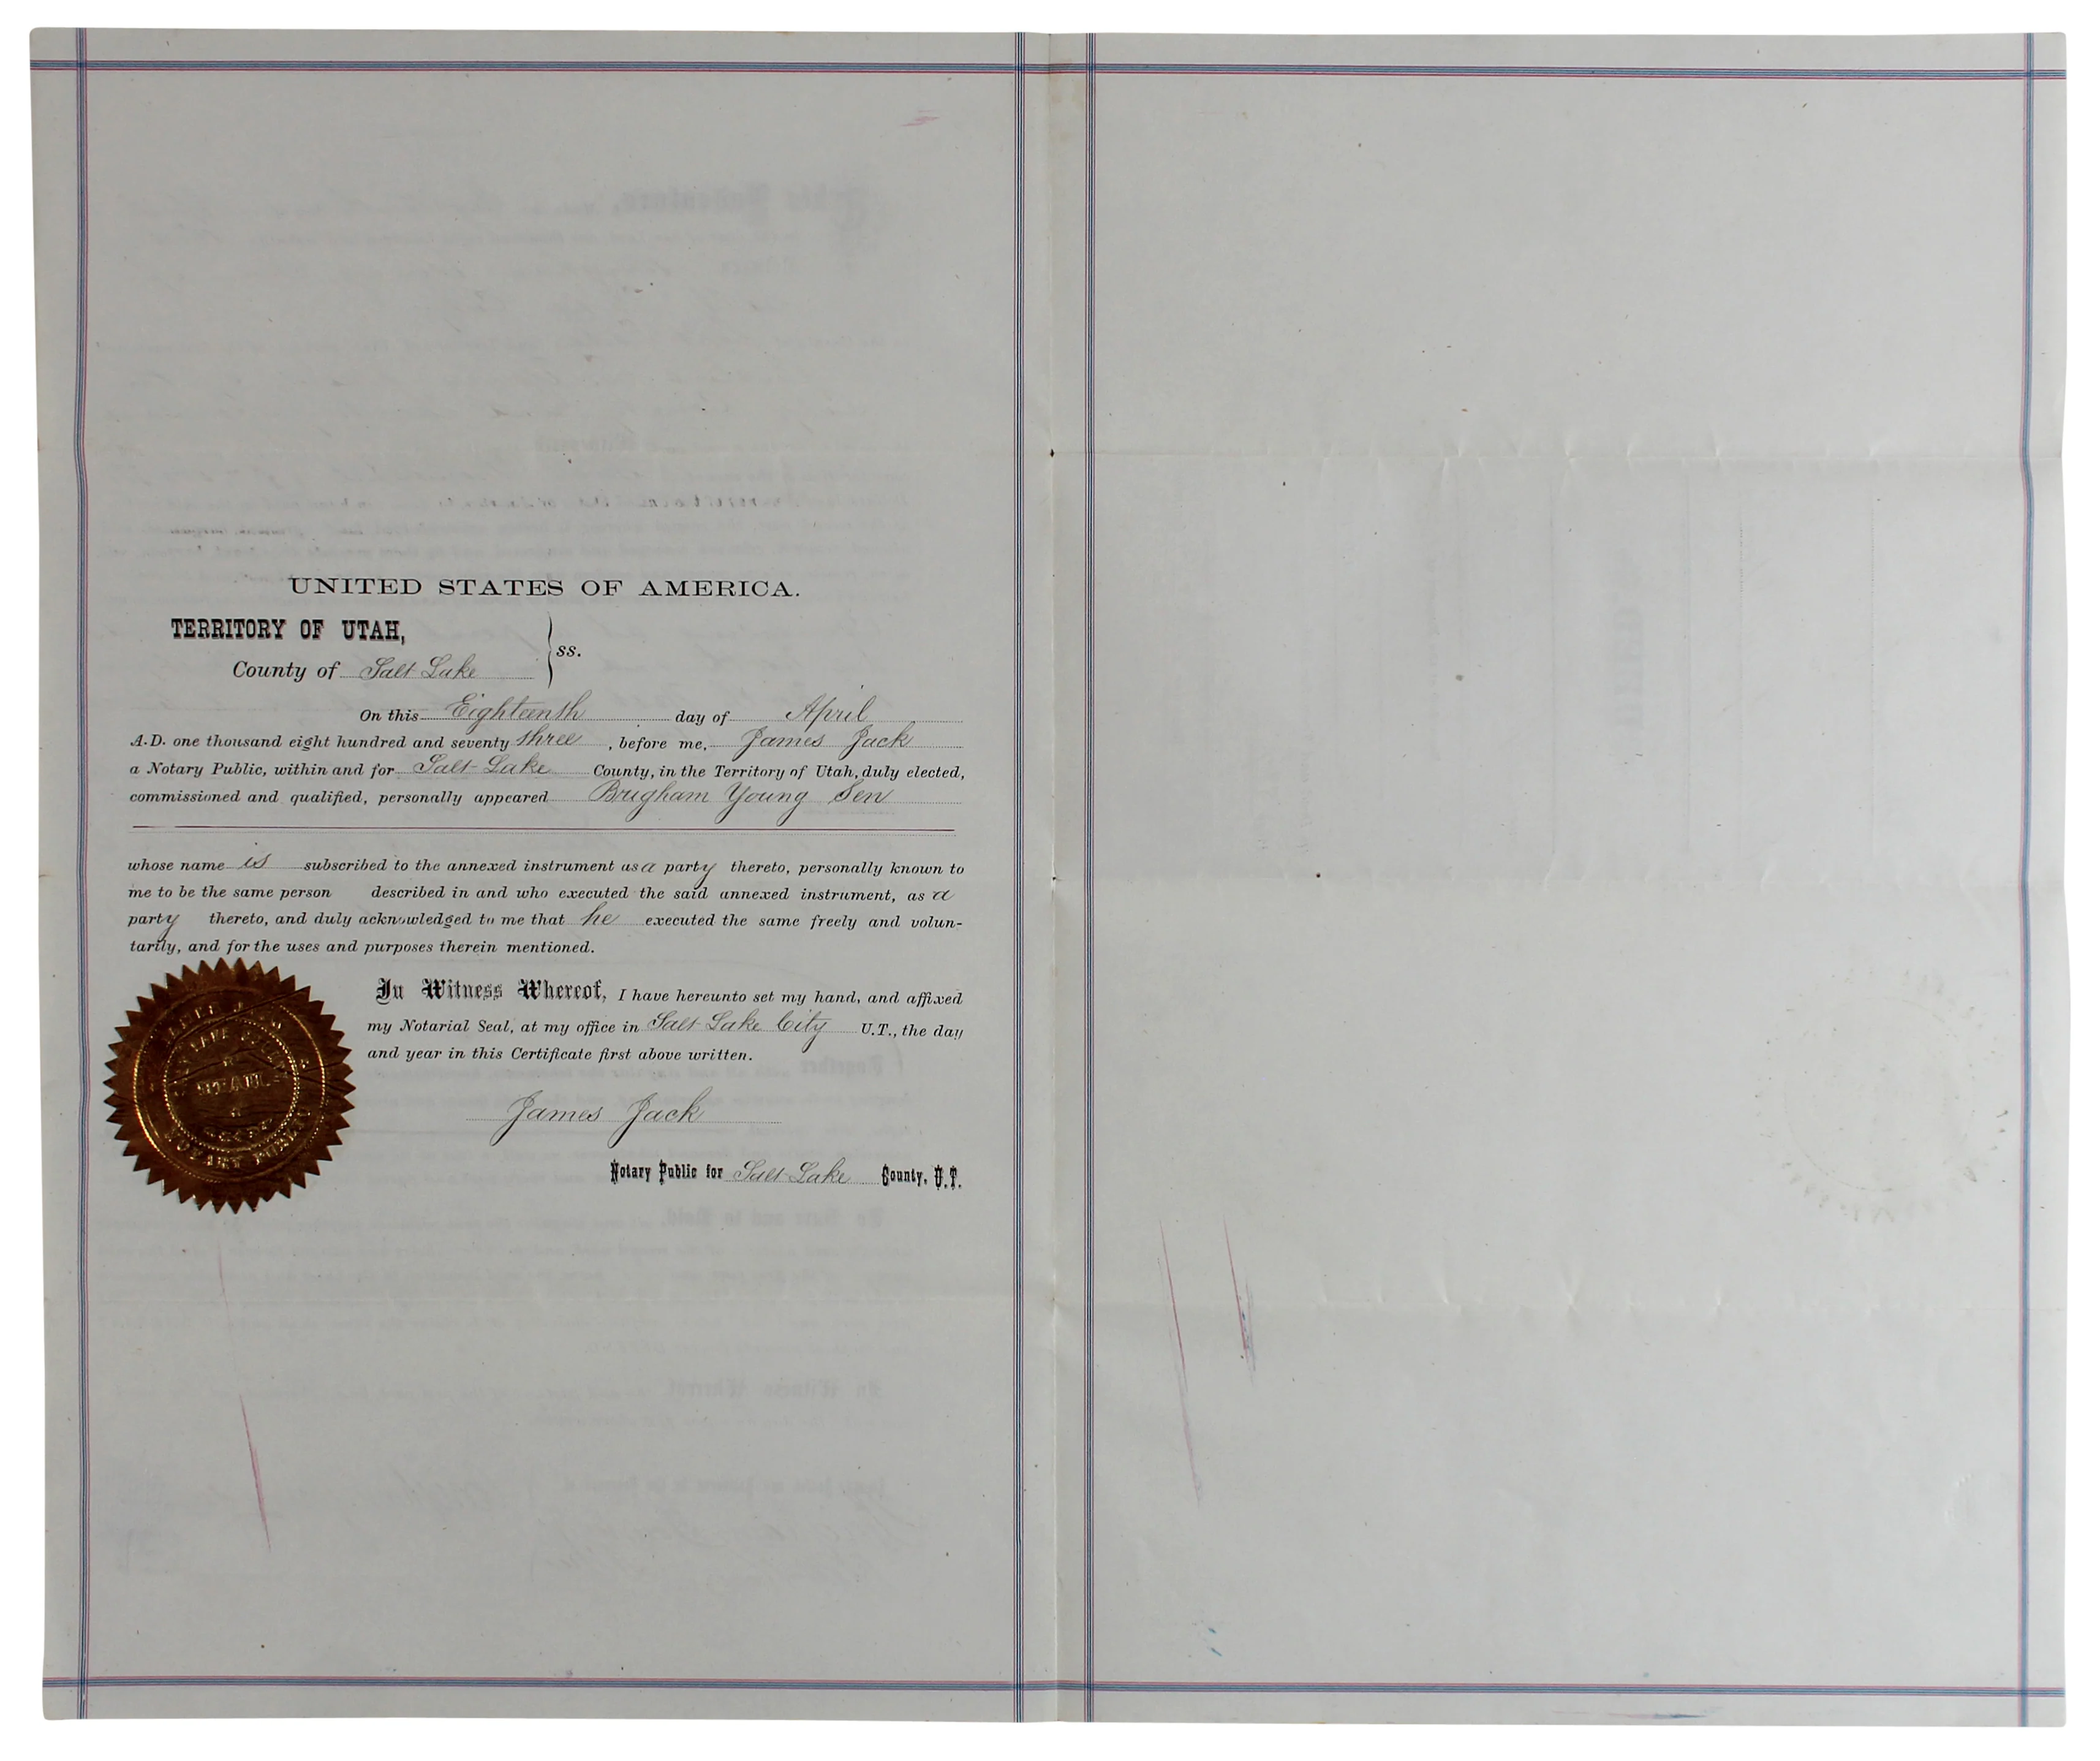 UNITED STATES OF AMERICA.
TERRITORY OF UTAH,
ss.
County of Salt Lake
On this Eighteenth day of April
A.D. one thousand eight hundred and seventy three, before me, James Jack
a Notary Public, within and for Salt Lake County, in the Territory of Utah, duly elected,
commissioned and qualified, personally appeared Brigham Young Sen
whose name is subscribed to the annexed instrument as a party thereto, personally known to
me to be the same person described in and who executed the said annexed instrument, as a
party thereto, and duly acknowledged to me that he executed the same freely and volun-
tarily, and for the uses and purposes therein mentioned.
In Witness Whereof, I have hereunto set my hand, and affixed
my Notarial Seal, at my office in Salt Lake City U.T., the day
and year in this Certificate first above written.
James Jack
Notary Public for Salt Lake County, U.T.
NOTARY PUBLIC